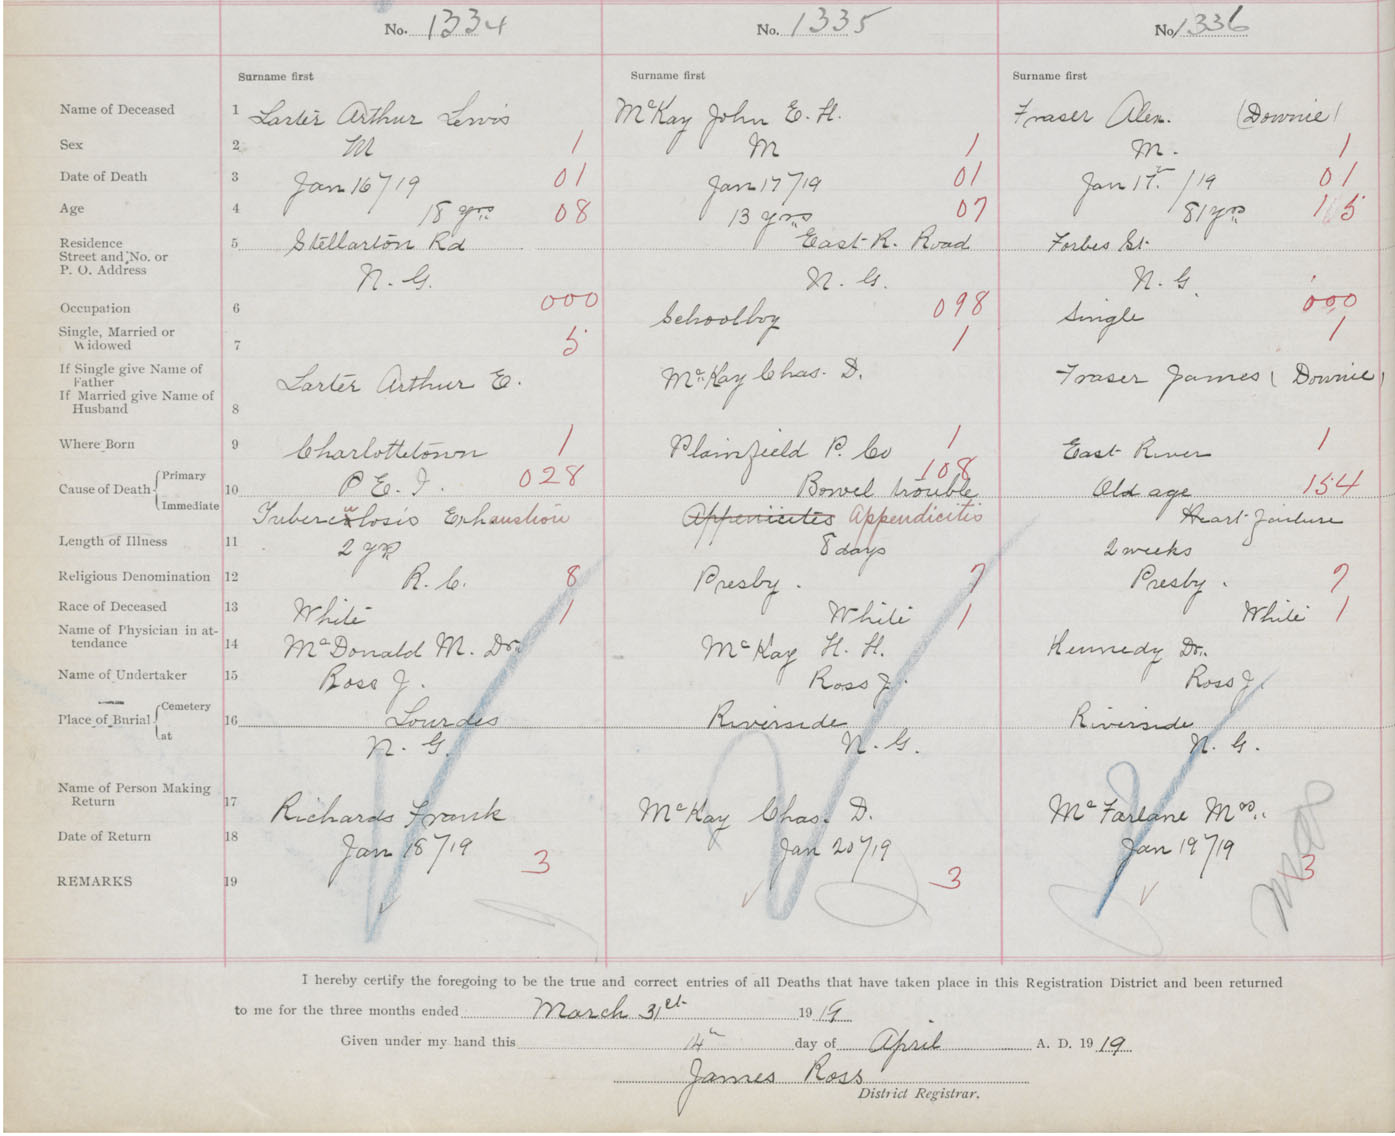 No. 1334 No. 1335 No. 1336
Surname first Surname first Surname first
Name of Deceased 1 Larter Arthur Lewis McKay John E. H. Fraser Alex. (Downie)
Sex 2 M 1 M 1 M. 1
Date of Death 3 Jan 16/19 01 Jan 17/19 01 Jan 17/19 01
Age 4 18 yrs 08 13 yrs 07 81 yrs 15
Residence 5 Stellarton Rd East R. Road Forbes St.
Street and No. or
P. O. Address N. G. N. G. N. G.
Occupation 6 000 Schoolboy 098 Single 000
Single, Married or
Widowed 7 5 1 1
If Single give Name of
Father Larter Arthur E. McKay Chas. D. Fraser James (Downie)
If Married give Name of
Husband 8
Where Born 9 Charlottetown 1 Plainfield P. Co 1 East River 1
Cause of Death Primary 10 P. E. I. 028 Bowel trouble 108 Old age 154
Immediate Tuberculosis Exhaustion Appenicites Appendicitis Heart failure
Length of Illness 11 2 yrs 8 days 2 weeks
Religious Denomination 12 R. C. 8 Presby. 7 Presby. 7
Race of Deceased 13 White 1 White 1 White 1
Name of Physician in at-
tendance 14 McDonald M. Dr. McKay H. H. Kennedy Dr.
Name of Undertaker 15 Ross J. Ross J. Ross J.
Place of Burial Cemetery 16 Lourdes Riverside Riverside
at N. G. N. G. N. G.
Name of Person Making
Return 17 Richards Frank McKay Chas. D. McFarlane Mrs.
Date of Return 18 Jan 18/19 Jan 20/19 Jan 19/19
REMARKS 19 3 3 3
I hereby certify the foregoing to be the true and correct entries of all Deaths that have taken place in this Registration District and been returned
to me for the three months ended March 31st 1919
Given under my hand this 14th day of April A. D. 1919
James Ross
District Registrar.